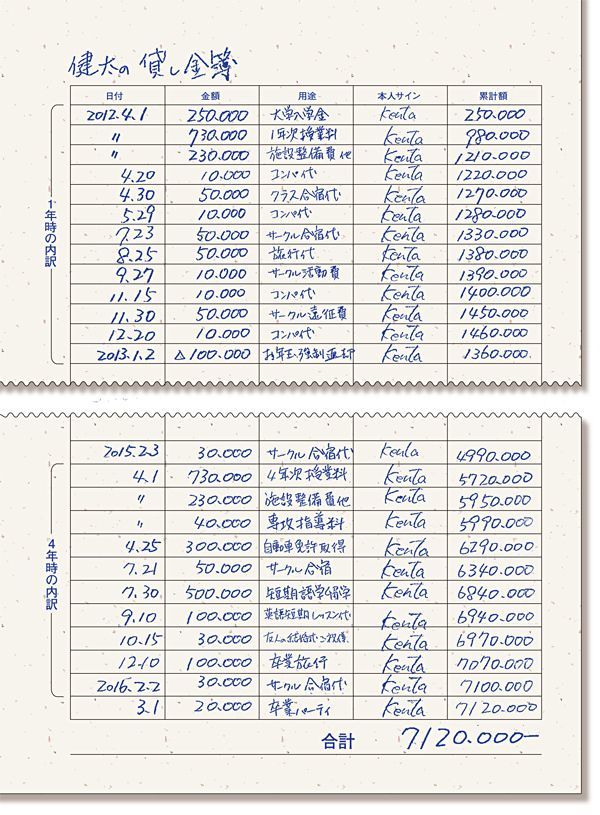 健太の貸し金簿
日付 金額 用途 本人サイン 累計額
2012.4.1 250.000 大学入学金 Kenta 250.000
〃 730.000 1年次授業料 Kenta 980.000
〃 230.000 施設整備費他 Kenta 1210.000
4.20 10.000 コンパ代 Kenta 1220.000
4.30 50.000 クラス合宿代 Kenta 1270.000
5.29 10.000 コンパ代 Kenta 1280.000
7.23 50.000 サークル合宿代 Kenta 1330.000
8.25 50.000 旅行代 Kenta 1380.000
9.27 10.000 サークル活動費 Kenta 1390.000
11.15 10.000 コンパ代 Kenta 1400.000
11.30 50.000 サークル遠征費 Kenta 1450.000
12.20 10.000 コンパ代 Kenta 1460.000
2013.1.2 △100.000 お年玉強制返却 Kenta 1360.000.
1年時の内訳
2015.2.3 30.000 サークル合宿代 Kenta 4990.000
4.1 730.000 4年次授業料 Kenta 5720.000
〃 230.000 施設整備費他 Kenta 5950.000
〃 40.000 専攻指導料 Kenta 5990.000
4.25 300.000 自動車免許取得 Kenta 6290.000
7.21 50.000 サークル合宿 Kenta 6340.000
7.30 500.000 短期語学留学 Kenta 6840.000
9.10 100.000 英語短期レッスン代 Kenta 6940.000
10.15 30.000 友人の結婚式ご祝儀 Kenta 6970.000
12.10 100.000 卒業旅行 Kenta 7070.000
2016.2.2 30.000 サークル合宿代 Kenta 7100.000
3.1 20.000 卒業パーティ Kenta 7120.000
4年時の内訳
合計 7120.000―